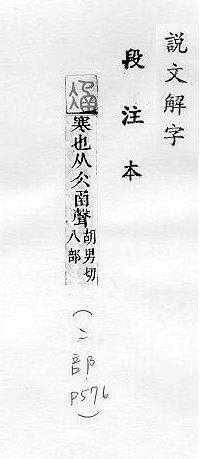 說文解字
段注本
寒也从仌圅聲胡男切
八部
(二部.
P576)